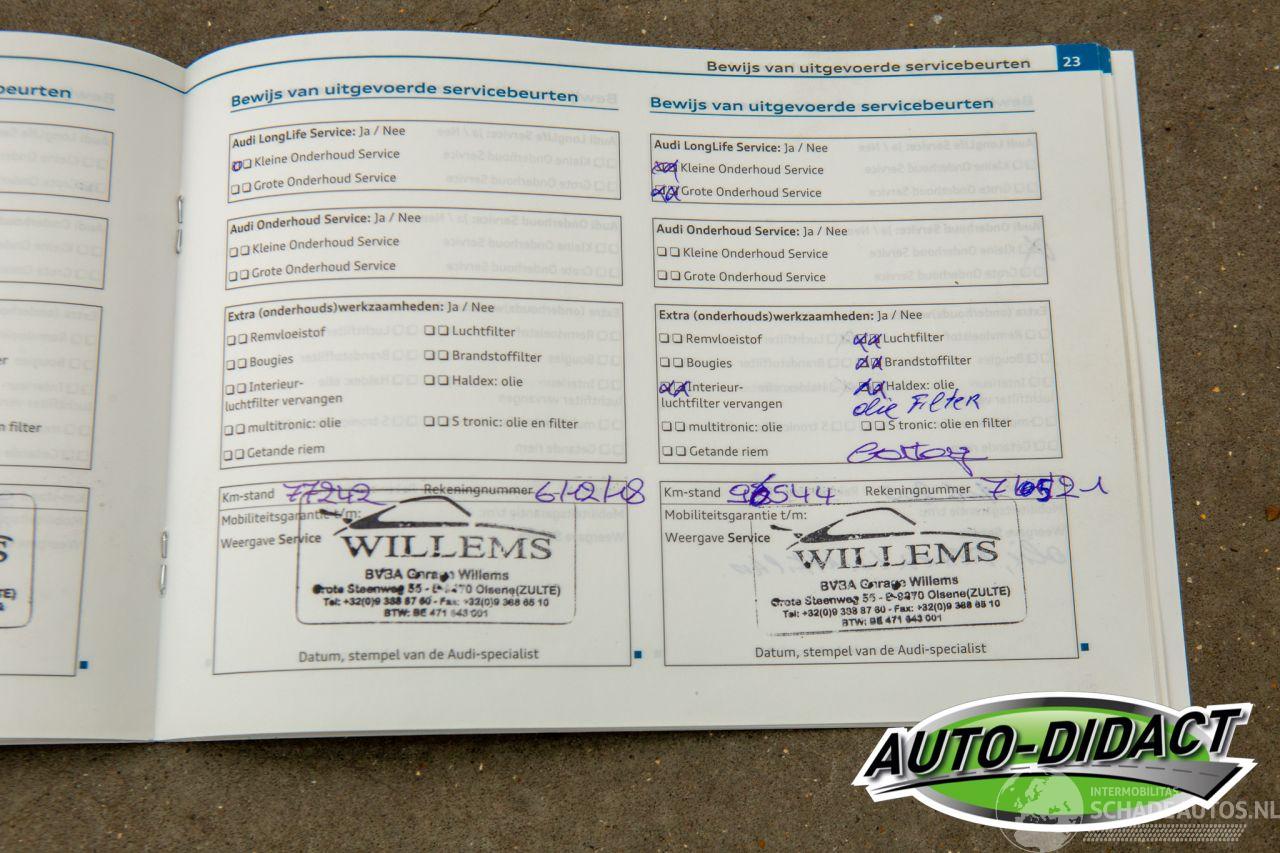 beurten
Bewijs van uitgevoerde servicebeurten 23
Bewijs van uitgevoerde servicebeurten
Audi LongLife Service: Ja / Nee
Kleine Onderhoud Service
Grote Onderhoud Service
Audi Onderhoud Service: Ja / Nee
Kleine Onderhoud Service
Grote Onderhoud Service
Extra (onderhouds)werkzaamheden: Ja / Nee
Remvloeistof Luchtfilter
Bougies Brandstoffilter
Interieur- Haldex: olie
luchtfilter vervangen
multitronic: olie S tronic: olie en filter
Getande riem
Km-stand 77242 Rekeningnummer 6/12/18
Mobiliteitsgarantie t/m:
Weergave Service
WILLEMS
BVBA Garage Willems
Grote Steenweg 55 - B-9870 Olsene(ZULTE)
Tel: +32(0)9 388 87 60 - Fax: +32(0)9 388 65 10
BTW: BE 471 643 001
Datum, stempel van de Audi-specialist
Bewijs van uitgevoerde servicebeurten
Audi LongLife Service: Ja / Nee
Kleine Onderhoud Service
Grote Onderhoud Service
Audi Onderhoud Service: Ja / Nee
Kleine Onderhoud Service
Grote Onderhoud Service
Extra (onderhouds)werkzaamheden: Ja / Nee
Remvloeistof Luchtfilter
Bougies Brandstoffilter
Interieur- Haldex: olie
luchtfilter vervangen olie FilTER
multitronic: olie S tronic: olie en filter
Getande riem
Km-stand 96544 Rekeningnummer
Mobiliteitsgarantie t/m:
Weergave Service
WILLEMS
BVBA Garage Willems
Grote Steenweg 55 - B-9870 Olsene(ZULTE)
Tel: +32(0)9 388 87 60 - Fax: +32(0)9 388 65 10
BTW: BE 471 643 001
Datum, stempel van de Audi-specialist
en filter
AUTO-DIDACT
INTERMOBILITAS
SCHADEAUTOS.NL